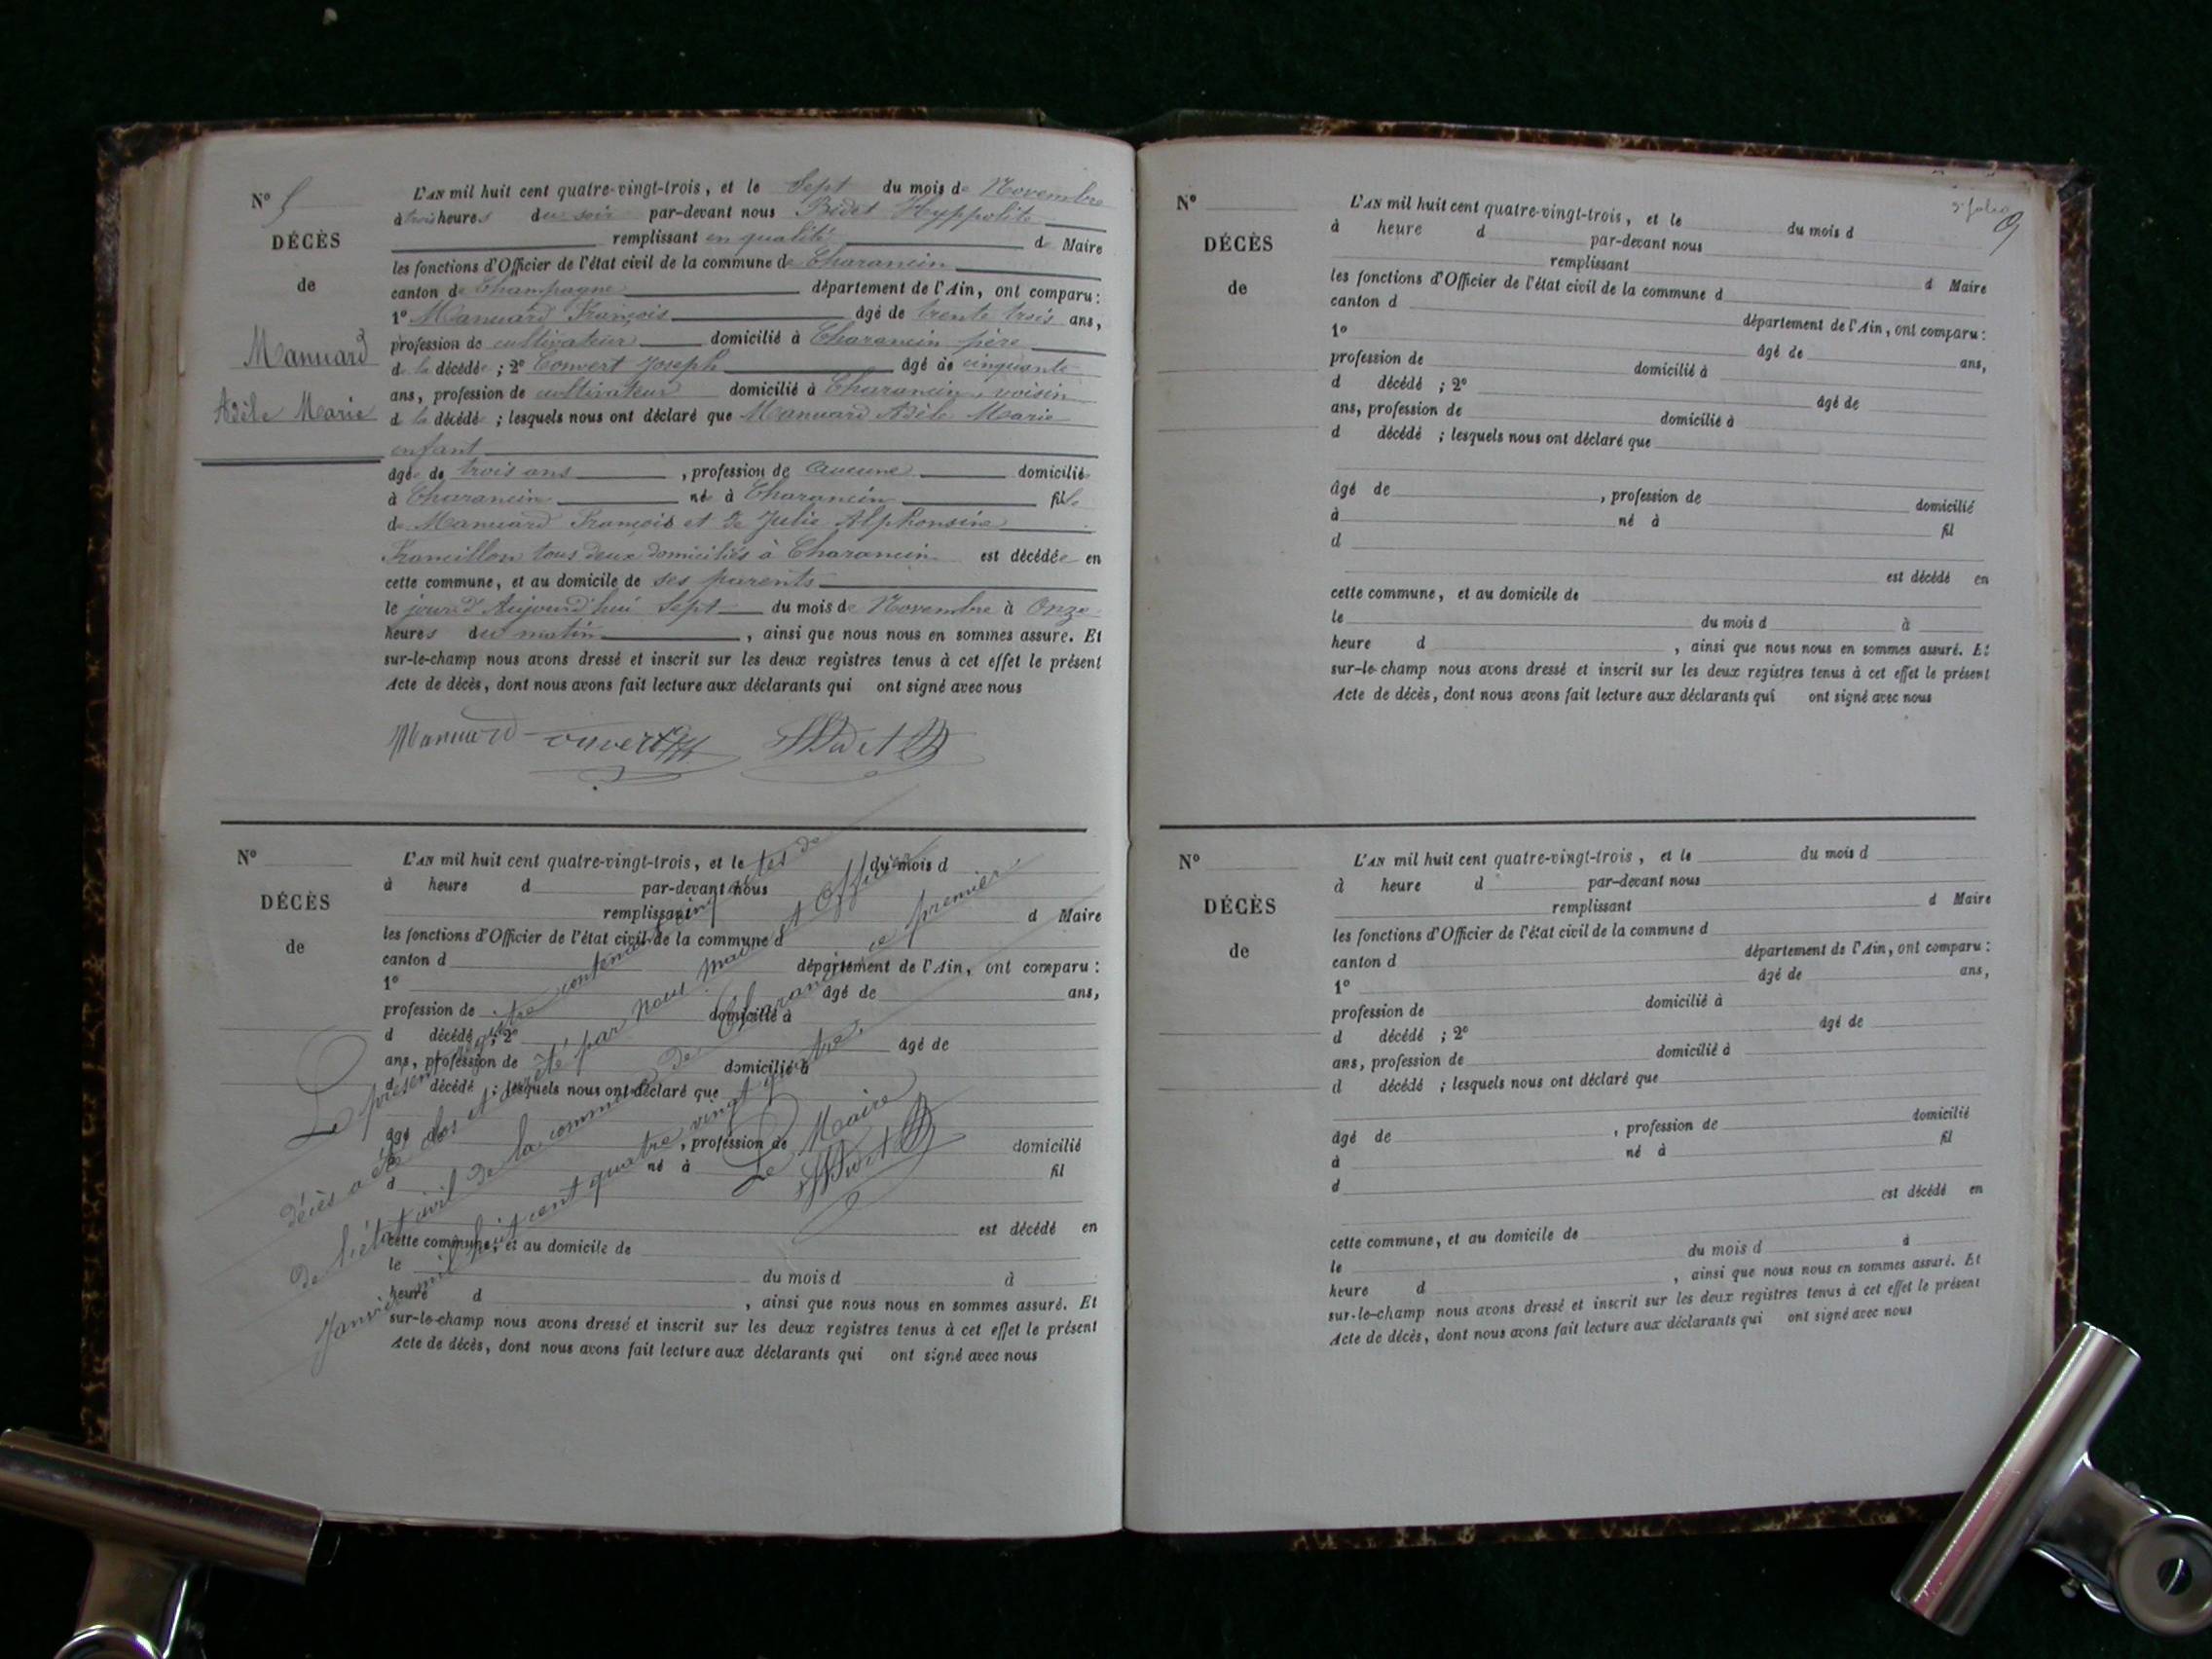 N° 5
DÉCÈS
de
Manuard
Adèle Marie
L'AN mil huit cent quatre-vingt-trois, et le Sept du mois de Novembre
à trois heures du soir par-devant nous Bidet Hyppolite
remplissant en qualité de Maire
les fonctions d'Officier de l'état civil de la commune de Charancin
canton de Champagne département de l'Ain, ont comparu :
1° Manuard François âgé de trente trois ans,
profession de cultivateur domicilié à Charancin père
de la décédée ; 2° Convert Joseph âgé de cinquante
ans, profession de cultivateur domicilié à Charancin, voisin
de la décédé ; lesquels nous ont déclaré que Manuard Adèle Marie
enfant
âgée de trois ans, profession de aucune domicilié
à Charancin né à Charancin fille
de Manuard François et de Julie Alphonsine
Francillon tous deux domiciliés à Charancin est décédée en
cette commune, et au domicile de ses parents
le jour d'Aujourd'hui Sept du mois de Novembre à Onze
heures du matin, ainsi que nous nous en sommes assuré. Et
sur-le-champ nous avons dressé et inscrit sur les deux registres tenus à cet effet le présent
Acte de décès, dont nous avons fait lecture aux déclarants qui ont signé avec nous
Manuard Convert HBidet
N°
DÉCÈS
de
L'AN mil huit cent quatre-vingt-trois, et le du mois d
à heure d par-devant nous
remplissant d Maire
les fonctions d'Officier de l'état civil de la commune d
canton d département de l'Ain, ont comparu :
1° âgé de ans,
profession de domicilié à
d décédé ; 2° âgé de
ans, profession de domicilié à
d décédé ; lesquels nous ont déclaré que
âgé de , profession de domicilié
à né à fil
d
est décédé en
cette commune, et au domicile de
le du mois d à
heure d , ainsi que nous nous en sommes assuré. Et
sur-le-champ nous avons dressé et inscrit sur les deux registres tenus à cet effet le présent
Acte de décès, dont nous avons fait lecture aux déclarants qui ont signé avec nous
Le présent registre contenant cinq actes de
décès a été clos et arrêté par nous maire et Officier
de l'état civil de la commune de Charancin ce premier
Janvier mil huit cent quatre vingt quatre.
Le Maire
HBidet
9
N°
DÉCÈS
de
L'AN mil huit cent quatre-vingt-trois, et le du mois d
à heure d par-devant nous
remplissant d Maire
les fonctions d'Officier de l'état civil de la commune d
canton d département de l'Ain, ont comparu :
1° âgé de ans,
profession de domicilié à
d décédé ; 2° âgé de
ans, profession de domicilié à
d décédé ; lesquels nous ont déclaré que
âgé de , profession de domicilié
à né à fil
d
est décédé en
cette commune, et au domicile de
le du mois d à
heure d , ainsi que nous nous en sommes assuré. Et
sur-le-champ nous avons dressé et inscrit sur les deux registres tenus à cet effet le présent
Acte de décès, dont nous avons fait lecture aux déclarants qui ont signé avec nous
N°
DÉCÈS
de
L'AN mil huit cent quatre-vingt-trois, et le du mois d
à heure d par-devant nous
remplissant d Maire
les fonctions d'Officier de l'état civil de la commune d
canton d département de l'Ain, ont comparu :
1° âgé de ans,
profession de domicilié à
d décédé ; 2° âgé de
ans, profession de domicilié à
d décédé ; lesquels nous ont déclaré que
âgé de , profession de domicilié
à né à fil
d
est décédé en
cette commune, et au domicile de
le du mois d à
heure d , ainsi que nous nous en sommes assuré. Et
sur-le-champ nous avons dressé et inscrit sur les deux registres tenus à cet effet le présent
Acte de décès, dont nous avons fait lecture aux déclarants qui ont signé avec nous